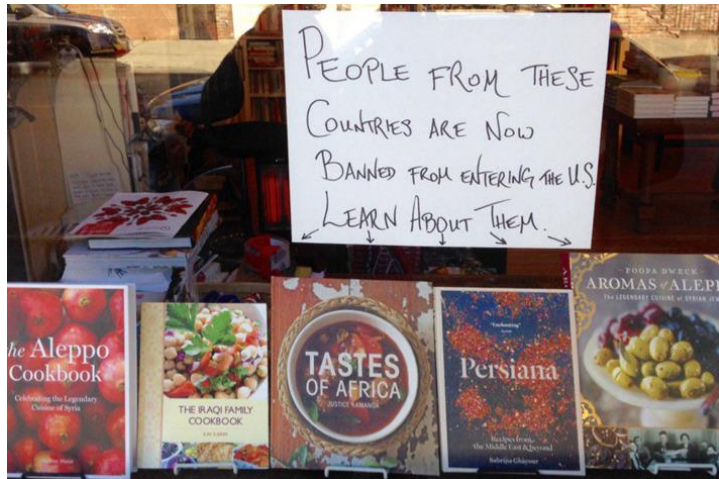 PEOPLE FROM THESE
COUNTRIES ARE NOW
BANNED FROM ENTERING THE U.S.
LEARN ABOUT THEM.
The Aleppo
Cookbook
Celebrating the Legendary
Cuisine of Syria
THE IRAQI FAMILY
COOKBOOK
TASTES
OF AFRICA
JUSTICE KAMANGA
"Enchanting"
Persiana
Recipes from
the Middle East & beyond
Sabrina Ghayour
POOPA DWECK
AROMAS of ALEPP
THE LEGENDARY CUISINE of SYRIAN JEW